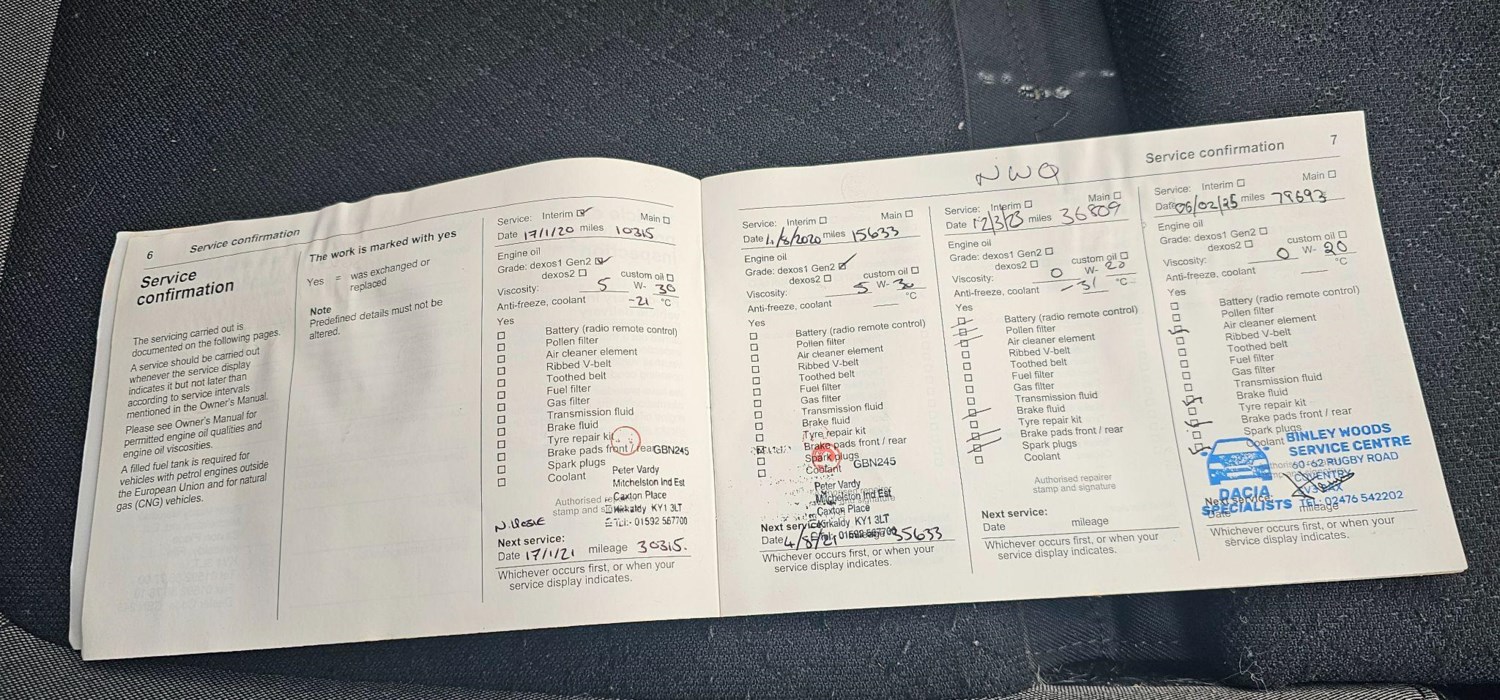 6 Service confirmation
Service
confirmation
The servicing carried out is
documented on the following pages.
A service should be carried out
whenever the service display
indicates it but not later than
according to service intervals
mentioned in the Owner's Manual.
Please see Owner's Manual for
permitted engine oil qualities and
engine oil viscosities.
A filled fuel tank is required for
vehicles with petrol engines outside
the European Union and for natural
gas (CNG) vehicles.
The work is marked with yes
Yes = was exchanged or
replaced
Note
Predefined details must not be
altered.
Service: Interim Main
Date 17/1/20 miles 10315
Engine oil
Grade: dexos1 Gen2
dexos2 custom oil
Viscosity: 5 W- 30
Anti-freeze, coolant -21 °C
Yes
Battery (radio remote control)
Pollen filter
Air cleaner element
Ribbed V-belt
Toothed belt
Fuel filter
Gas filter
Transmission fluid
Brake fluid
Tyre repair kit
Brake pads front / rear GBN245
Spark plugs
Coolant
Peter Vardy
Mitchelston Ind Est
Caxton Place
Kirkaldy KY1 3LT
Tel: 01592 567700
Authorised
stamp and
Next service:
Date 17/1/21 mileage 30315.
Whichever occurs first, or when your
service display indicates.
Service confirmation 7
NWQ
Service: Interim Main
Date 1/8/2020 miles 15633
Engine oil
Grade: dexos1 Gen2
dexos2 custom oil
Viscosity: 5 W- 30
Anti-freeze, coolant °C
Yes
Battery (radio remote control)
Pollen filter
Air cleaner element
Ribbed V-belt
Toothed belt
Fuel filter
Gas filter
Transmission fluid
Brake fluid
Tyre repair kit
Brake pads front / rear
Spark plugs
Coolant GBN245
Peter Vardy
Mitchelston Ind Est
Caxton Place
Kirkaldy KY1 3LT
Tel: 01592 567700
Next service:
Date 4/8/21 mileage 35633
Whichever occurs first, or when your
service display indicates.
Service: Interim Main
Date 12/3/23 miles 36809
Engine oil
Grade: dexos1 Gen2
dexos2 custom oil
Viscosity: 0 W- 20
Anti-freeze, coolant -31 °C
Yes
Battery (radio remote control)
Pollen filter
Air cleaner element
Ribbed V-belt
Toothed belt
Fuel filter
Gas filter
Transmission fluid
Brake fluid
Tyre repair kit
Brake pads front / rear
Spark plugs
Coolant
Authorised repairer
stamp and signature
Next service:
Date mileage
Whichever occurs first, or when your
service display indicates.
Service: Interim Main
Date 06/02/25 miles 78693
Engine oil
Grade: dexos1 Gen2
dexos2 custom oil
Viscosity: 0 W- 20
Anti-freeze, coolant °C
Yes
Battery (radio remote control)
Pollen filter
Air cleaner element
Ribbed V-belt
Toothed belt
Fuel filter
Gas filter
Transmission fluid
Brake fluid
Tyre repair kit
Brake pads front / rear
Spark plugs
Coolant
BINLEY WOODS
SERVICE CENTRE
60-62 RUGBY ROAD
COVENTRY
TEL: 02476 542202
DACIA
SPECIALISTS
Next service:
Date mileage
Whichever occurs first, or when your
service display indicates.